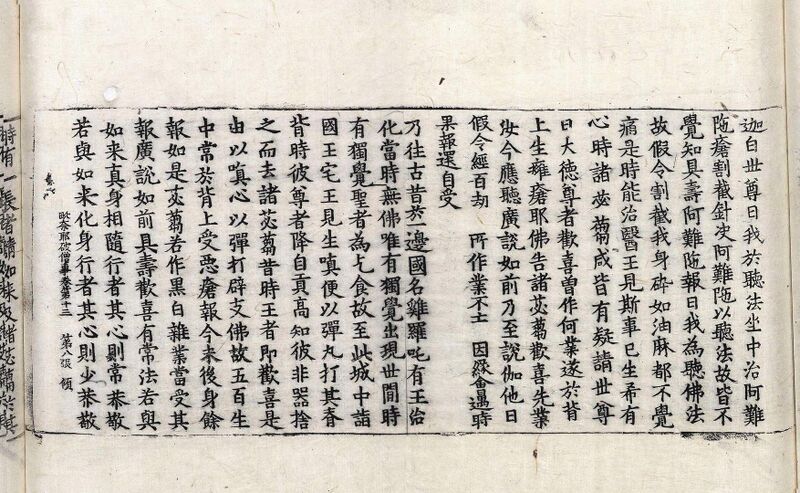 迦白世尊曰我於聽法坐中治阿難
陁瘡割截針決阿難陁以聽法故皆不
覺知具壽阿難陁報曰我為聽佛法
故假令割截我身碎如油麻都不覺
痛是時能治醫王見斯事已生希有
心時諸苾蒭咸皆有疑請世尊
曰大德尊者歡喜曽作何業遂於背
上生癰瘡耶佛告諸苾蒭歡喜先業
汝今應聽廣說如前乃至說伽他曰
假令經百劫 所作業不亡 因緣會遇時
果報還自受
乃往古昔於一邊國名雞羅吒有王治
化當時無佛唯有獨覺出現世間時
有獨覺聖者為乞食故至此城中詣
國王宅王見生嗔便以彈丸打其脊
背時彼尊者降自貢高知彼非器捨
之而去諸苾蒭昔時王者即歡喜是
由以嗔心以彈打辟支佛故五百生
中常於背上受惡瘡報今来後身餘
報如是苾蒭若作黑白雜業當受其
報廣說如前具壽歡喜有常法若與
如来真身相隨行者其心則常恭敬
若與如来化身行者其心則少恭敬
奈耶破僧事卷第十三 第八張 傾
時有一長者請如來及諸苾蒭於其